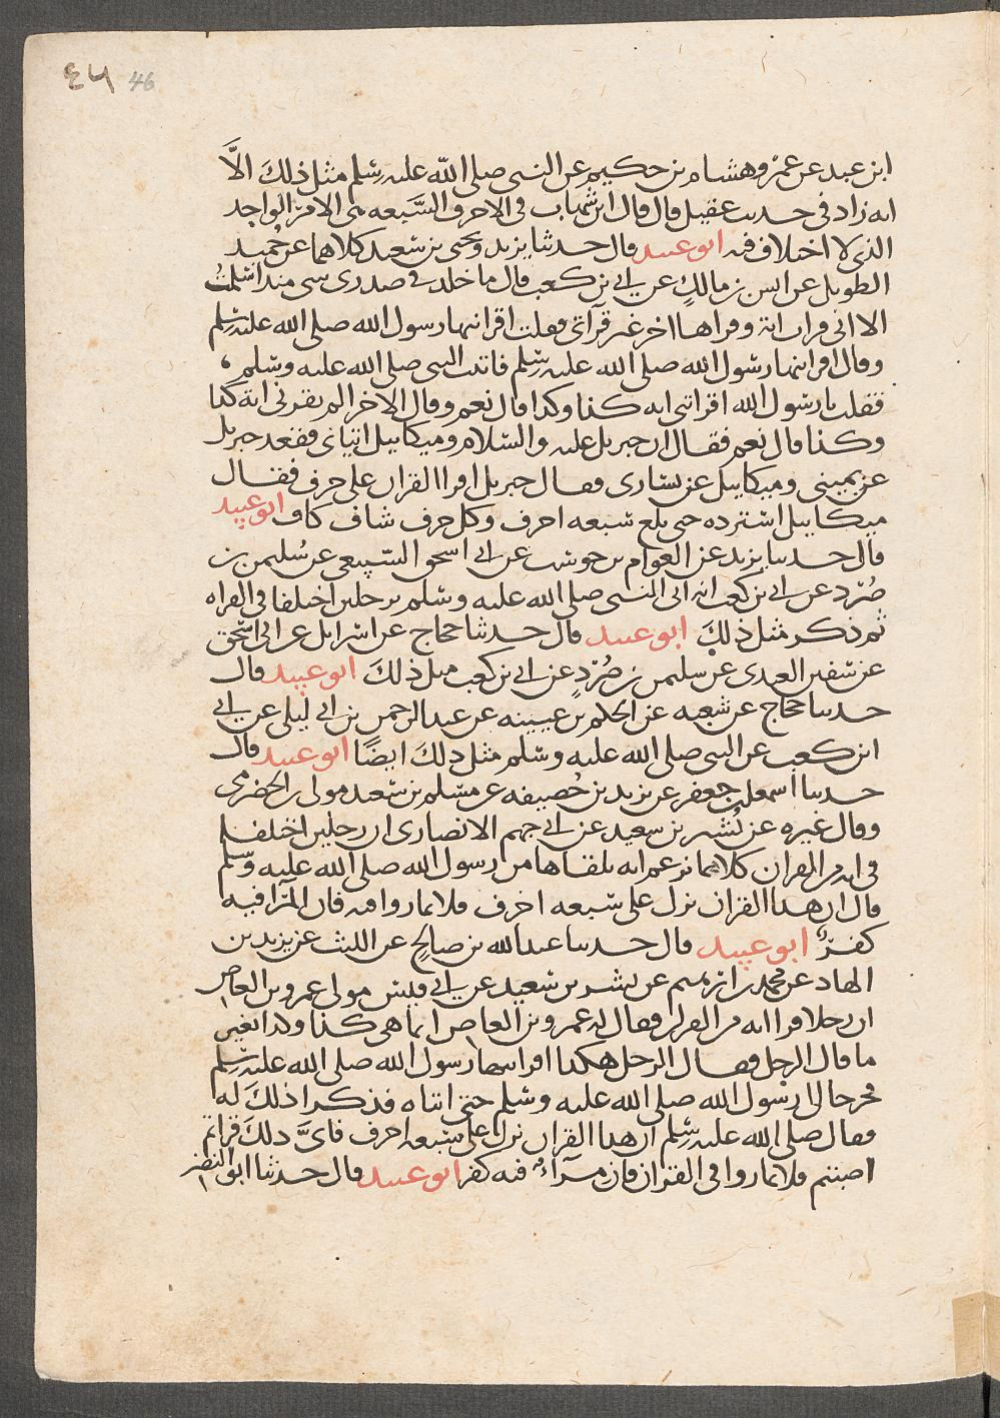 ٤٦ 46
ابن عبد عن عمر وهشام بن حكيم عن النبى صلى الله عليه وسلم مثل ذلك الا
انه زاد فى حديث عقيل قال قال ابن شهاب فى الاحرف السبعه هى الامر الواحد
الذى لا اختلاف فيه ابو عبيد قال حدثنا يزيد ويحيى بن سعيد كلاهما عن حميد
الطويل عن انس بن مالك عن ابى بن كعب قال ما خلد فى صدرى شى منذ اسلمت
الا انى قرات اية وقراها اخر غير قرآتى فقلت اقرانيها رسول الله صلى الله عليه وسلم
وقال اقرانيها رسول الله صلى الله عليه وسلم فاتيت النبى صلى الله عليه وسلم
فقلت يا رسول الله اقراتنى ايه كذا وكذا قال نعم وقال الاخر الم تقرنى اية كذا
وكذا قال نعم فقال ان جبريل عليه والسلام وميكاييل اتيانى فقعد جبريل
عن يمينى وميكاييل عن يسارى فقال جبريل اقرا القران على حرف فقال
ميكاييل استزده حتى بلغ سبعه احرف وكل حرف شاف كاف ابو عبيد
قال حدثنا يزيد عن العوام بن حوشب عن ابى اسحق السبيعى عن سليمن بن
صُرَد عن ابى بن كعب انه اتى النبى صلى الله عليه وسلم برجلين اختلفا فى القراه
ثم ذكر مثل ذلك ابو عبيد قال حدثنا حجاج عن اسرايل عن ابى اسحق
عن سفين العبدى عن سليمن بن صُرَدٍ عن ابى بن كعب مثل ذلك ابو عبيد قال
حدثنا حجاج عن شعبه عن الحكم بن عيينه عن عبد الرحمن بن ابى ليلى عن ابى
ابن كعب عن النبى صلى الله عليه وسلم مثل ذلك ايضًا ابو عبيد قال
حدثنا اسمعيل بن جعفر عن يزيد بن خُصيفه عن مسلم بن سعيد مولى الحضرمى
وقال غيره عن بُسْر بن سعيد عن ابى جهم الانصارى ان رجلين اختلفا
فى ايه من القران كلاهما يزعم انه تلقاها من رسول الله صلى الله عليه وسلم
قال ان هذا القران نزل على سبعه احرف فلا تماروا فيه فان المرا فيه
كفر ابو عبيد قال حدثنا عبد الله بن صالح عن الليث عن يزيد بن
الهاد عن محمد بن ابرهيم عن بسر بن سعيد عن ابى قيس مولى عمرو بن العاص
ان رجلا قرا ايه من القران فقال له عمرو بن العاص انما هى كذا وكذا بغير
ما قال الرجل فقال الرجل هكذا اقرانيها رسول الله صلى الله عليه وسلم
فخرجا الى رسول الله صلى الله عليه وسلم حتى اتياه فذكرا ذلك له
فقال صلى الله عليه وسلم ان هذا القران نزل على سبعه احرف فاىَّ ذلك قراتم
اصبتم فلا تماروا فى القران فان مرآءً فيه كفر ابو عبيد قال حدثنا ابو النضر